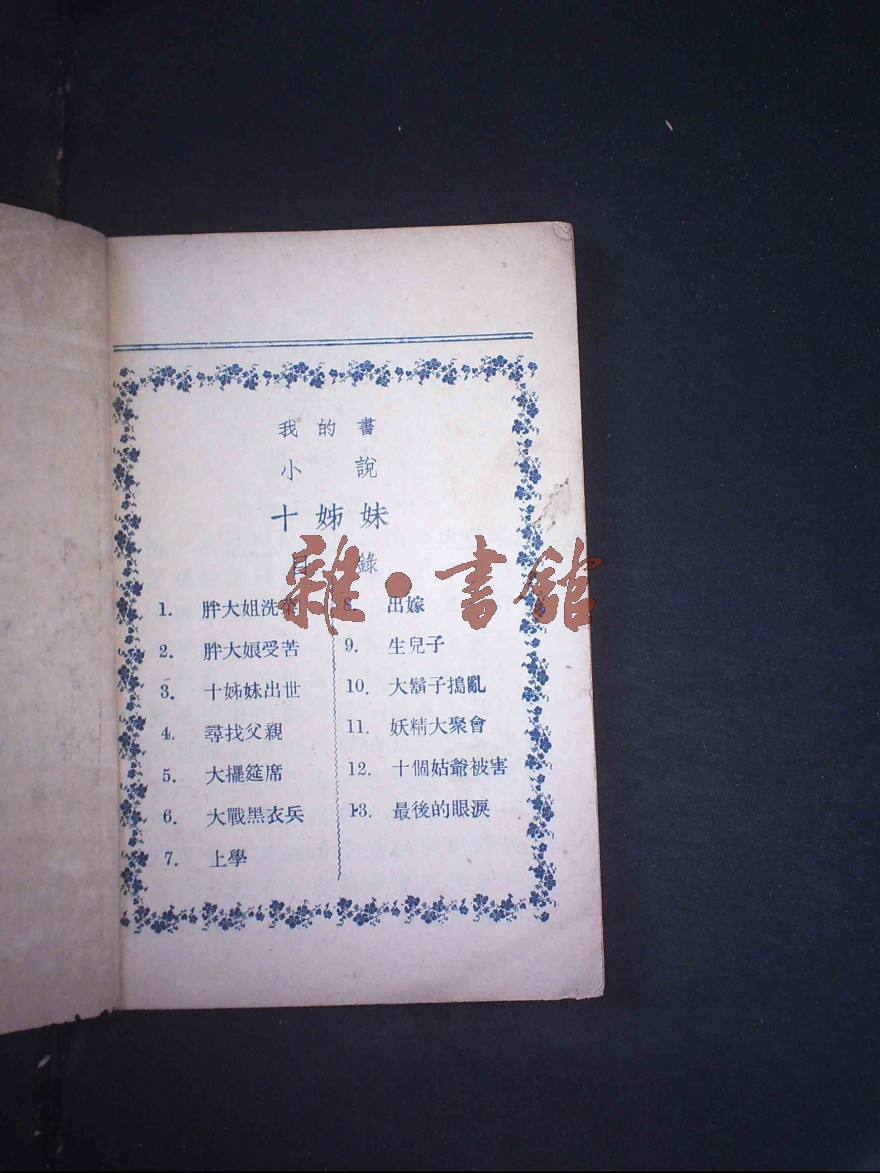 我的書
小說
十姊妹
目錄
1. 胖大姐洗菜
2. 胖大娘受苦
3. 十姊妹出世
4. 尋找父親
5. 大擺筵席
6. 大戰黑衣兵
7. 上學
8. 出嫁
9. 生兒子
10. 大鬍子搗亂
11. 妖精大聚會
12. 十個姑爺被害
13. 最後的眼淚
雜·書館